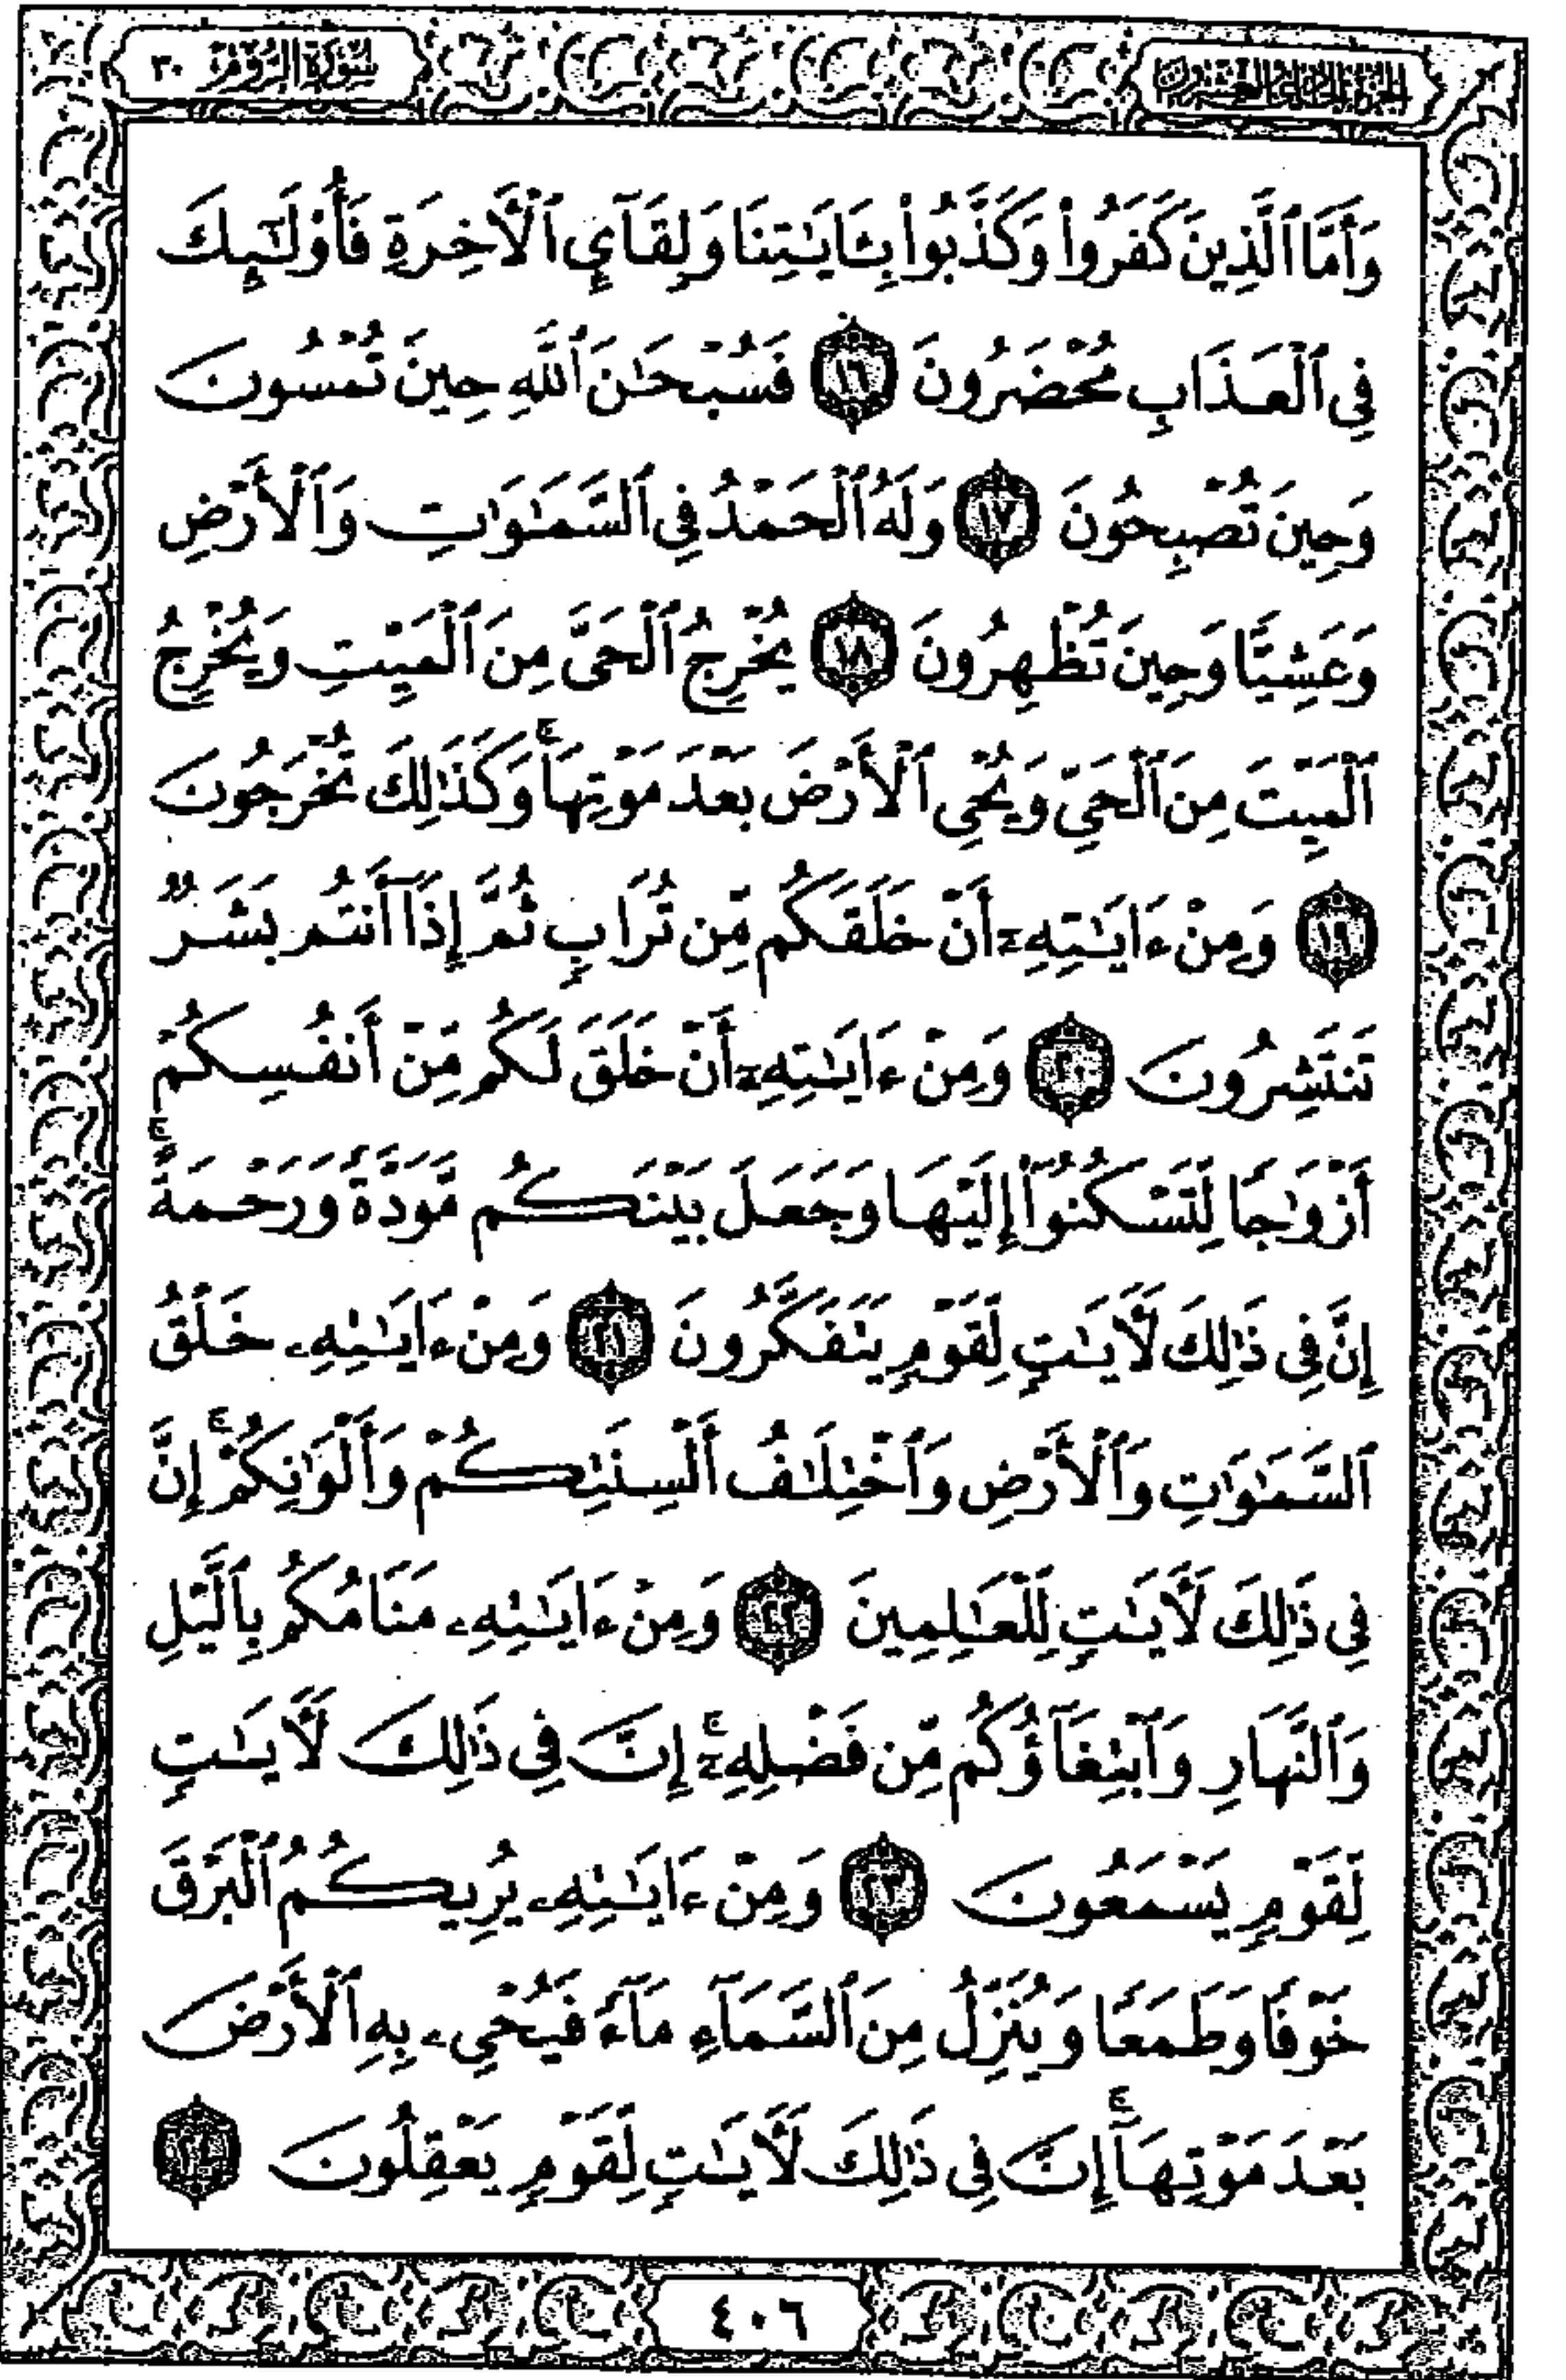 الجزء الحادي والعشرون
سُورَةُ الرُّومِ ٣٠
وَأَمَّا ٱلَّذِينَ كَفَرُوا۟ وَكَذَّبُوا۟ بِـَٔايَـٰتِنَا وَلِقَآئِ ٱلْـَٔاخِرَةِ فَأُو۟لَـٰٓئِكَ
فِى ٱلْعَذَابِ مُحْضَرُونَ ١٦ فَسُبْحَـٰنَ ٱللَّهِ حِينَ تُمْسُونَ
وَحِينَ تُصْبِحُونَ ١٧ وَلَهُ ٱلْحَمْدُ فِى ٱلسَّمَـٰوَٰتِ وَٱلْأَرْضِ
وَعَشِيًّا وَحِينَ تُظْهِرُونَ ١٨ يُخْرِجُ ٱلْحَىَّ مِنَ ٱلْمَيِّتِ وَيُخْرِجُ
ٱلْمَيِّتَ مِنَ ٱلْحَىِّ وَيُحْىِ ٱلْأَرْضَ بَعْدَ مَوْتِهَا ۚ وَكَذَٰلِكَ تُخْرَجُونَ
١٩ وَمِنْ ءَايَـٰتِهِۦٓ أَنْ خَلَقَكُم مِّن تُرَابٍ ثُمَّ إِذَآ أَنتُم بَشَرٌ
تَنتَشِرُونَ ٢٠ وَمِنْ ءَايَـٰتِهِۦٓ أَنْ خَلَقَ لَكُم مِّنْ أَنفُسِكُمْ
أَزْوَٰجًا لِّتَسْكُنُوٓا۟ إِلَيْهَا وَجَعَلَ بَيْنَكُم مَّوَدَّةً وَرَحْمَةً ۚ
إِنَّ فِى ذَٰلِكَ لَـَٔايَـٰتٍ لِّقَوْمٍ يَتَفَكَّرُونَ ٢١ وَمِنْ ءَايَـٰتِهِۦ خَلْقُ
ٱلسَّمَـٰوَٰتِ وَٱلْأَرْضِ وَٱخْتِلَـٰفُ أَلْسِنَتِكُمْ وَأَلْوَٰنِكُمْ ۚ إِنَّ
فِى ذَٰلِكَ لَـَٔايَـٰتٍ لِّلْعَـٰلِمِينَ ٢٢ وَمِنْ ءَايَـٰتِهِۦ مَنَامُكُم بِٱلَّيْلِ
وَٱلنَّهَارِ وَٱبْتِغَآؤُكُم مِّن فَضْلِهِۦٓ ۚ إِنَّ فِى ذَٰلِكَ لَـَٔايَـٰتٍ
لِّقَوْمٍ يَسْمَعُونَ ٢٣ وَمِنْ ءَايَـٰتِهِۦ يُرِيكُمُ ٱلْبَرْقَ
خَوْفًا وَطَمَعًا وَيُنَزِّلُ مِنَ ٱلسَّمَآءِ مَآءً فَيُحْىِۦ بِهِ ٱلْأَرْضَ
بَعْدَ مَوْتِهَآ ۚ إِنَّ فِى ذَٰلِكَ لَـَٔايَـٰتٍ لِّقَوْمٍ يَعْقِلُونَ ٢٤
٤٠٦